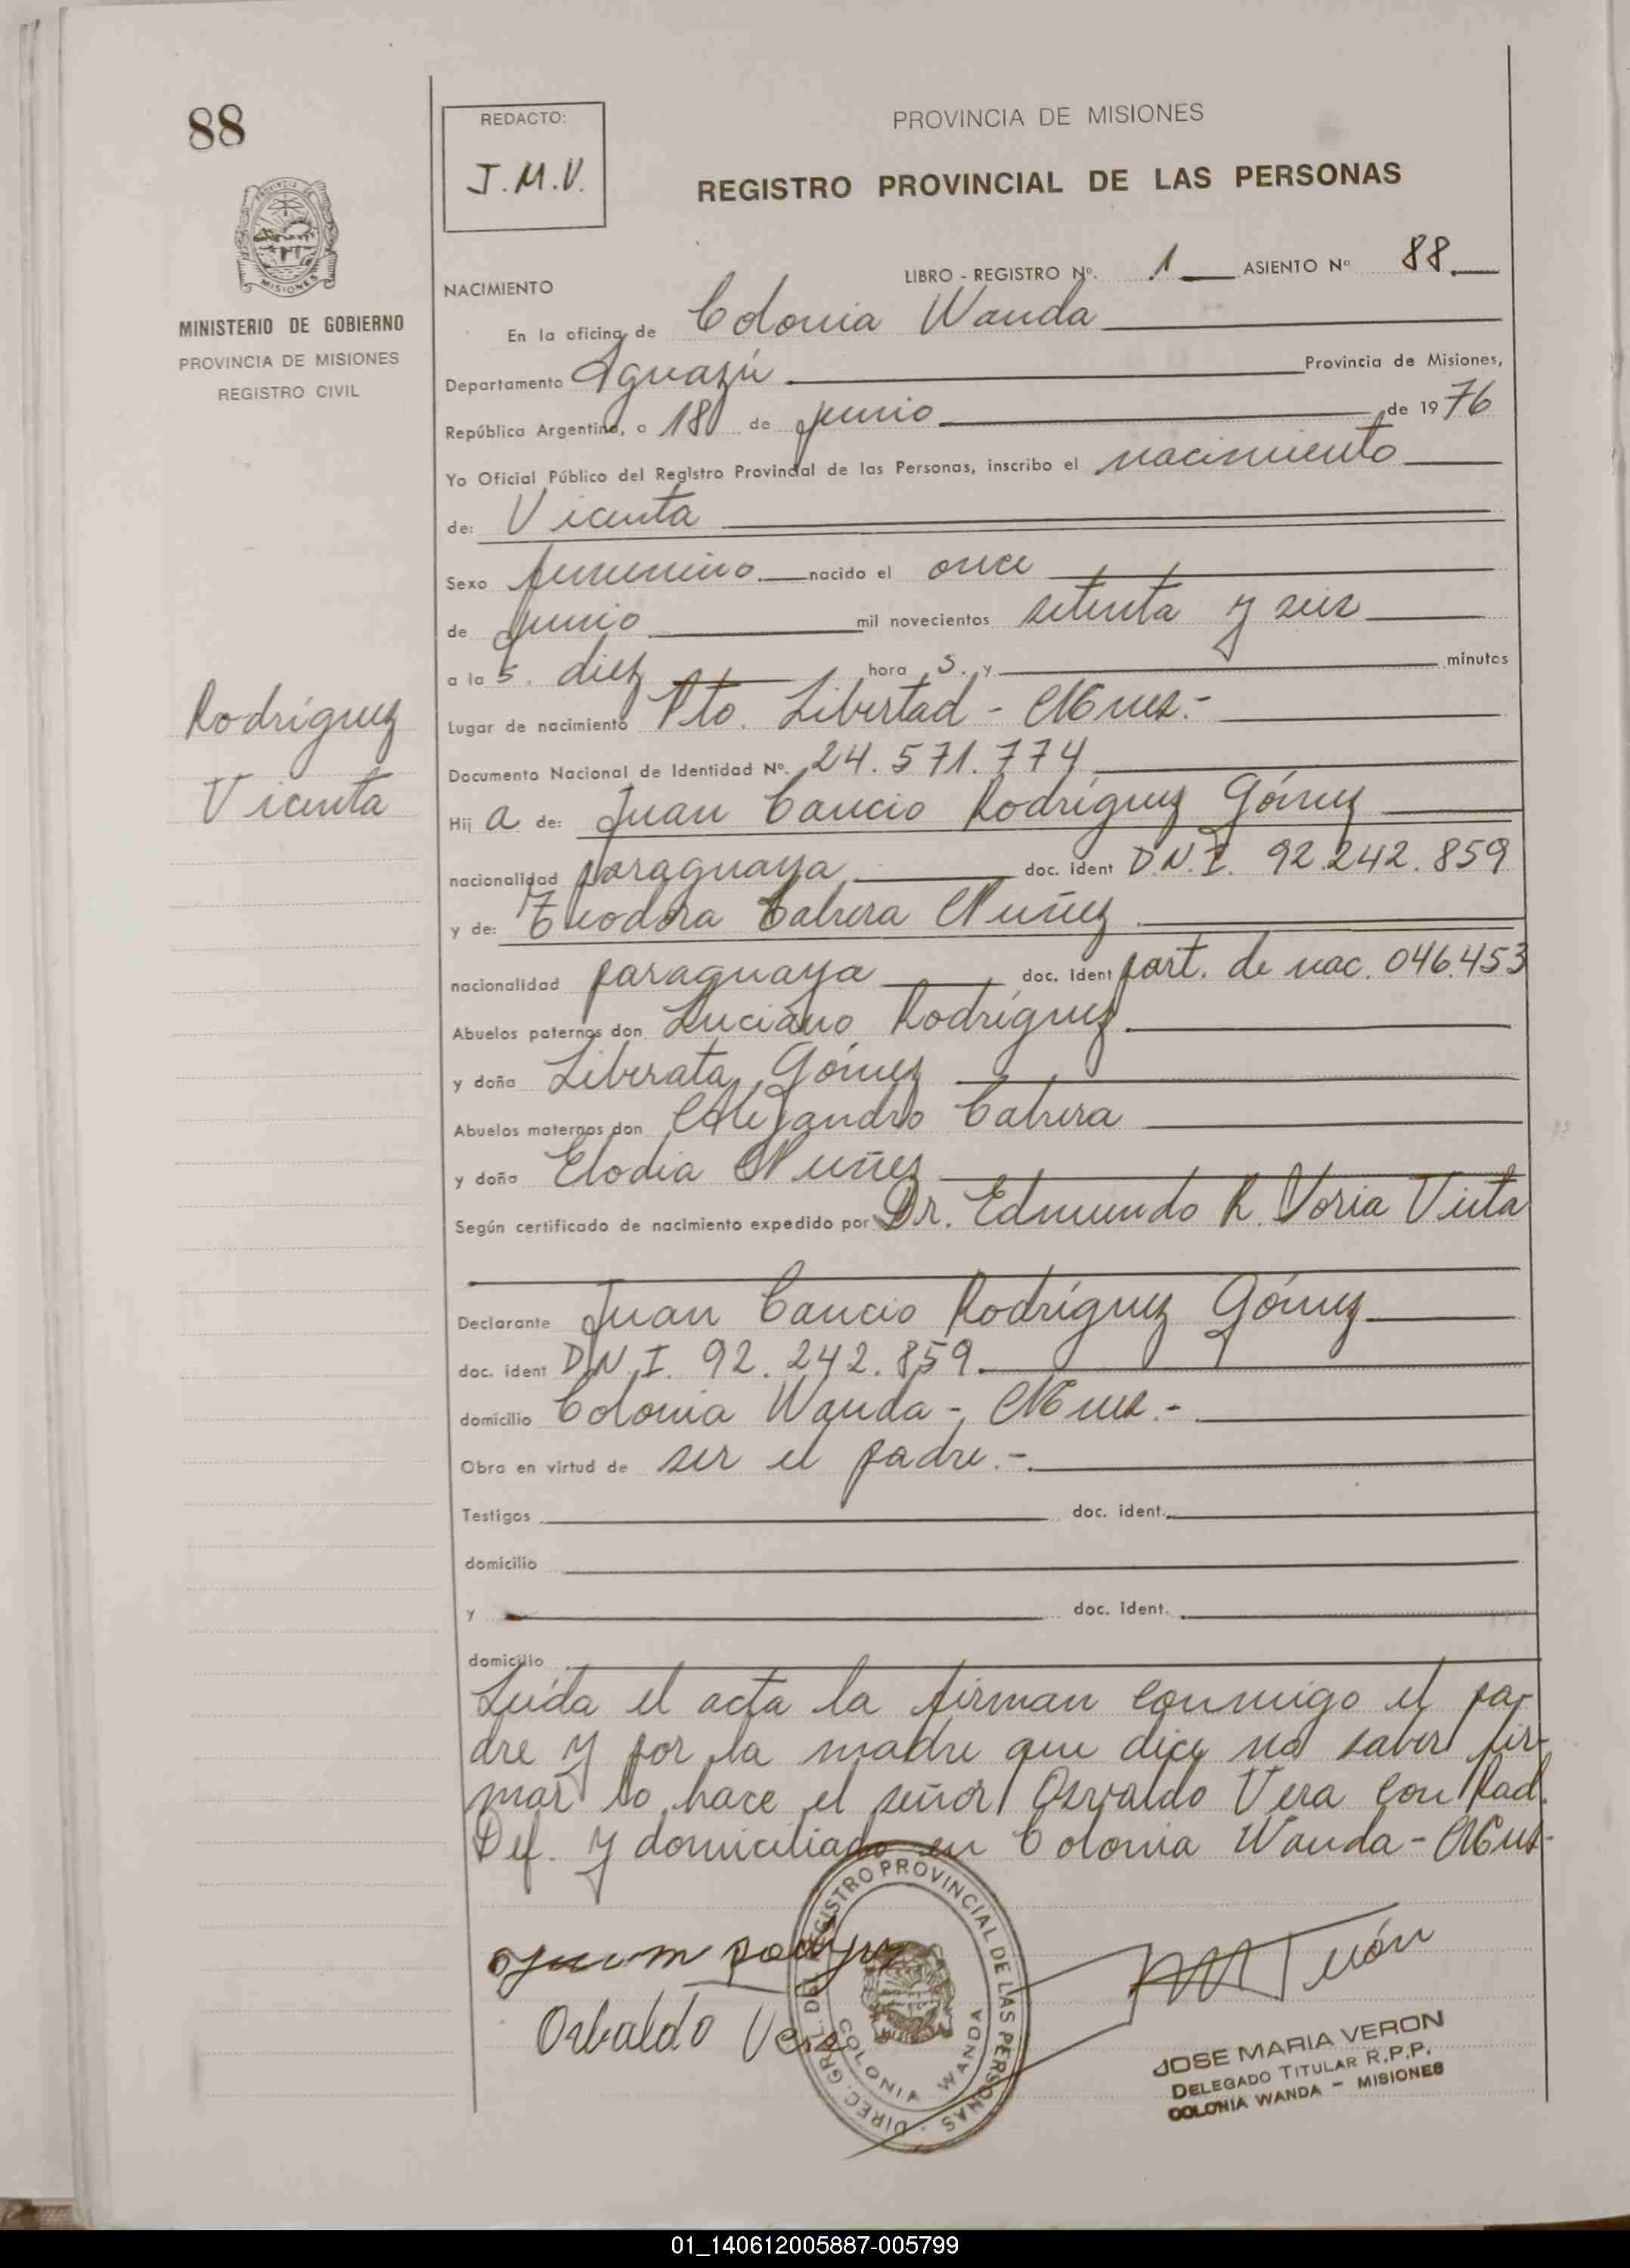 88
REDACTO:
J.M.V.
PROVINCIA DE MISIONES
REGISTRO PROVINCIAL DE LAS PERSONAS
MISIONES
MINISTERIO DE GOBIERNO
PROVINCIA DE MISIONES
REGISTRO CIVIL
LIBRO - REGISTRO Nº. 1 ASIENTO Nº 88
NACIMIENTO
En la oficina de Colonia Wanda
Departamento Iguazú Provincia de Misiones,
República Argentina, a 18 de junio de 1976
Yo Oficial Público del Registro Provincial de las Personas, inscribo el nacimiento
de: Vicenta
Sexo femenino nacido el once
de junio mil novecientos setenta y seis
a la s. diez hora s. y minutos
Lugar de nacimiento Pto. Libertad - Mnes.-
Documento Nacional de Identidad Nº. 24.571.774
Rodríguez
Vicenta
Hij a de: Juan Cancio Rodríguez Gómez
nacionalidad paraguaya doc. ident D.N.I. 92.242.859
y de: Teodora Cabrera Nuñez
nacionalidad paraguaya doc. ident part. de nac. 046.453
Abuelos paternos don Luciano Rodríguez
y doña Liberata Gómez
Abuelos maternos don Alejandro Cabrera
y doña Elodia Nuñez
Según certificado de nacimiento expedido por Dr. Edmundo R. Voria Vieta
Declarante Juan Cancio Rodríguez Gómez
doc. ident D.N.I. 92.242.859.
domicilio Colonia Wanda - Mnes.-
Obra en virtud de ser el padre.-
Testigos doc. ident.
domicilio
y doc. ident.
domicilio
Leída el acta la firman conmigo el pa-
dre y por la madre que dice no saber fir-
mar lo hace el señor Osvaldo Vera con Rad.
Def. y domiciliado en Colonia Wanda - Mnes-
Osbaldo Vera
DIREC. GRL. DEL REGISTRO PROVINCIAL DE LAS PERSONAS
COLONIA WANDA
JOSE MARIA VERON
DELEGADO TITULAR R.P.P.
COLONIA WANDA - MISIONES
01_140612005887-005799